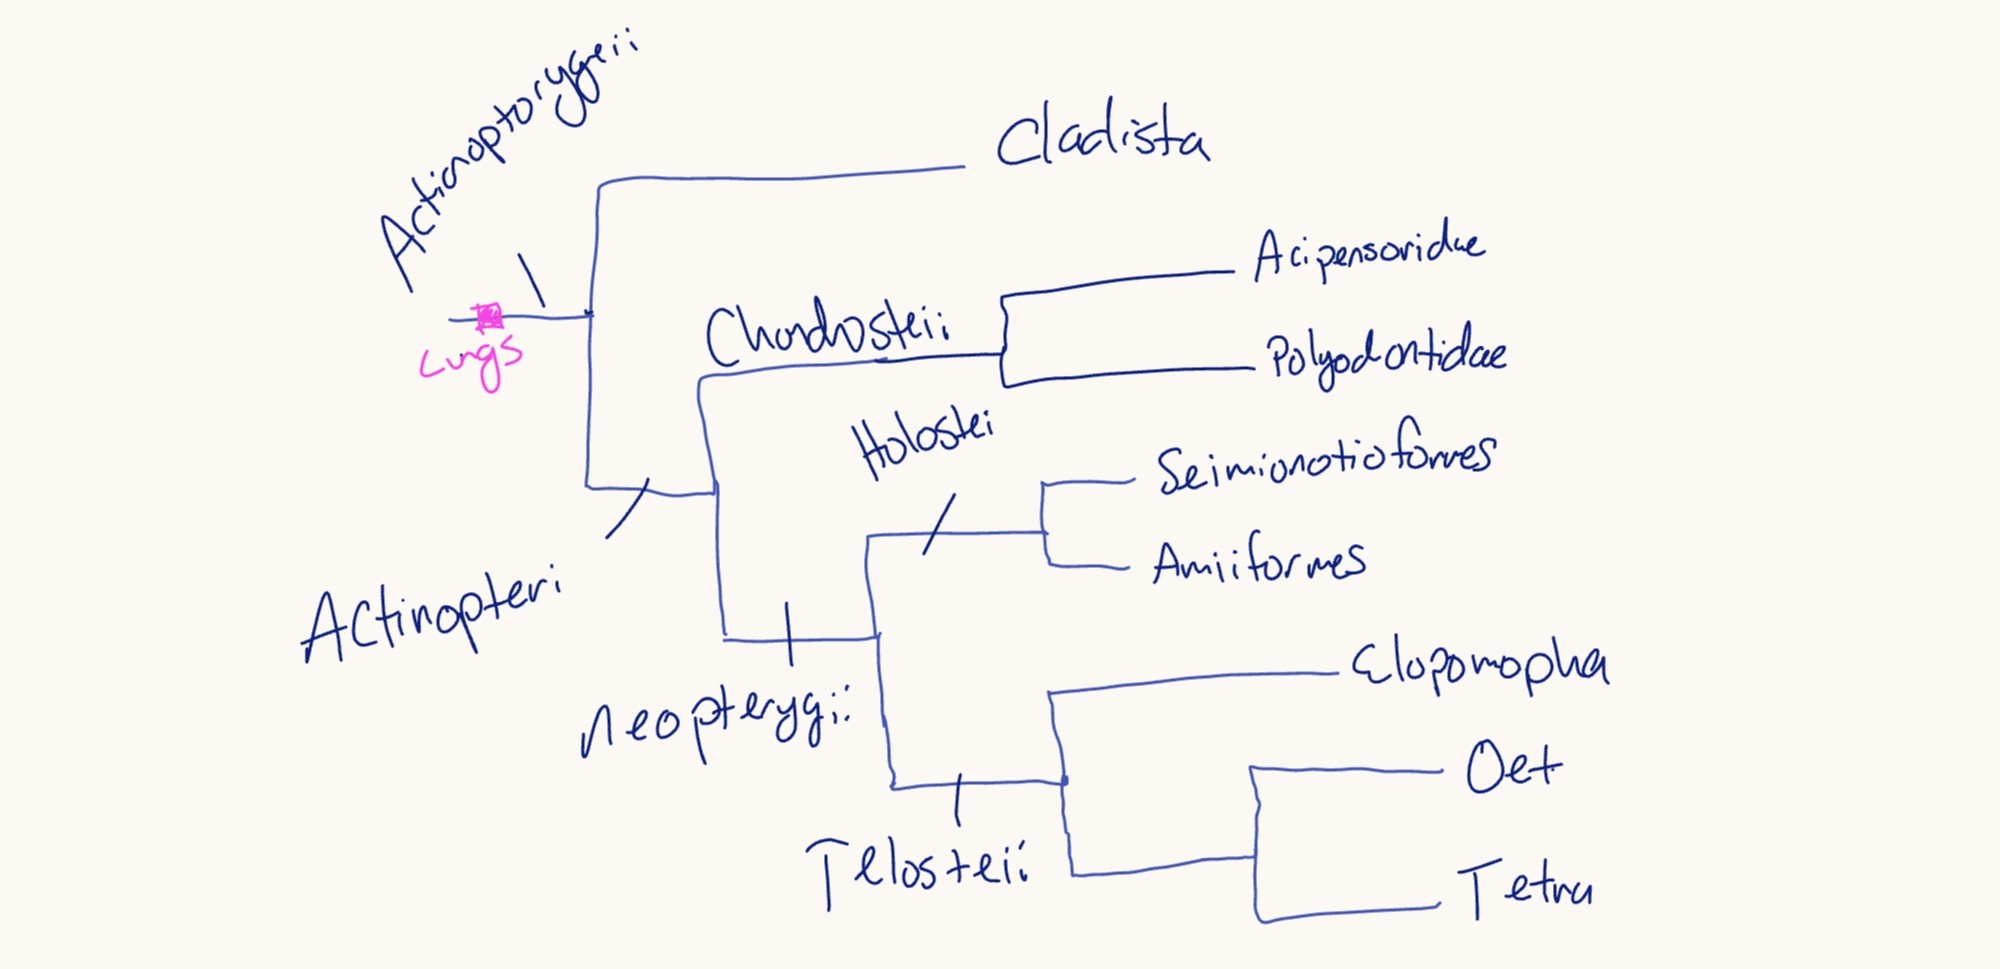 Actionoptorygeii
Cladista
Acipensoridae
Lungs
Chondrosteii
Polyodontidae
Holostei
Seimionotioformes
Amiiformes
Actinopteri
Elopomopha
neopterygii
Oet
Telosteii
Tetra